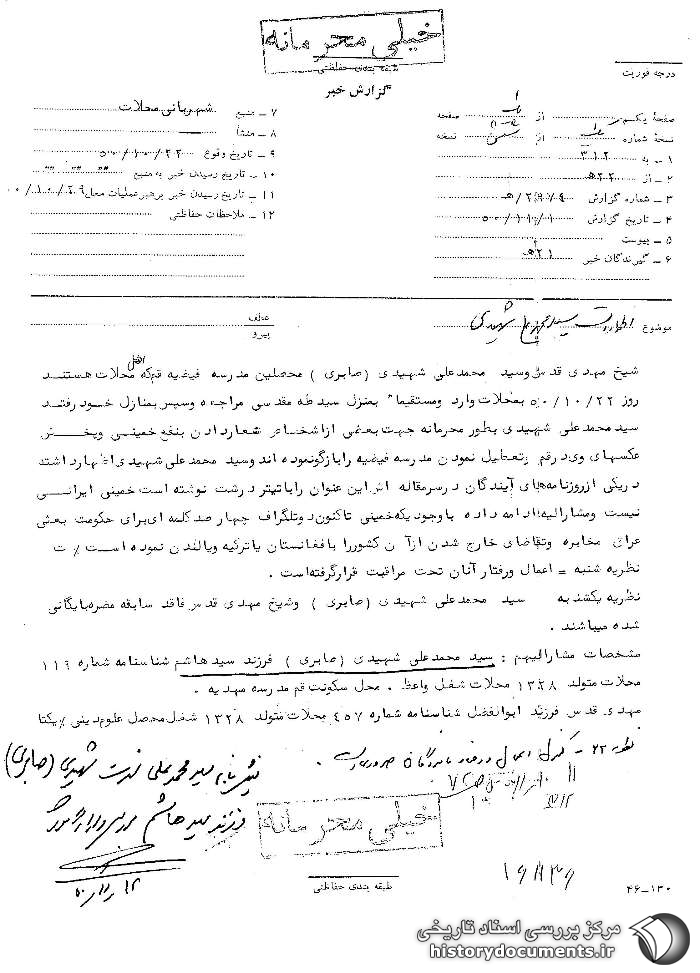 خیلی محرمانه
طبقه بندی حفاظتی
گزارش خبر
درجه فوریت
صفحه یکم از صفحه
نسخه شماره از نسخه
۱ – به ۳۱۲
۲ – از ۵۲۲
۳ – شماره گزارش
۴ – تاریخ گزارش
۵ – پیوست
۶ – گیرندگان خبر ۵۲۱
۷ – منبع شهربانی محلات
۸ – منشأ
۹ – تاریخ وقوع ۵۰/۱۰/۲۲
۱۰ – تاریخ رسیدن خبر به منبع
۱۱ – تاریخ رسیدن خبر برهبر عملیات محل
۱۲ – ملاحظات حفاظتی
موضوع اظهارات سید شهیدی
عطف
پیرو
شیخ مهدی قدس وسید محمدعلی شهیدی (صابری) محصلین مدرسه فیضیه قم که اهل محلات هستند
روز ۵۰/۱۰/۲۲ بمحلات وارد ومستقیماً بمنزل سید طه مقدسی مراجعه وسپس بمنازل خود رفتند
سید محمد علی شهیدی بطور محرمانه جهت بعضی از اشخاص شعار دادن بنفع خمینی وپخش
عکسهای وی در قم وتعطیل نمودن مدرسه فیضیه را بازگو نموده اند وسید محمد علی شهیدی اظهار داشته
در یکی از روزنامه های آیندگان در سرمقاله اش این عنوان را با تیتر درشت نوشته است خمینی ایرانی
نیست ومشارالیه ادامه داده با وجودیکه خمینی تاکنون دو تلگراف چهار صد کلمه ای برای حکومت بعثی
عراق مخابره وتقاضای خارج شدن از آن کشور را با افغانستان یا ترکیه ویا لندن نموده است / ت
نظریه شنبه – اعمال ورفتار آنان تحت مراقبت قرار گرفته است .
نظریه یکشنبه سید محمدعلی شهیدی (صابری) وشیخ مهدی قدس فاقد سابقه مضره بایگانی
شده میباشند .
مشخصات مشارالیهم : سید محمدعلی شهیدی (صابری) فرزند سید هاشم شناسنامه شماره ۱۱۹
محلات متولد ۱۳۲۸ محلات شغل واعظ . محل سکونت قم مدرسه مهدیه .
مهدی قدس فرزند ابوالفضل شناسنامه شماره ۴۵۷ محلات متولد ۱۳۲۸ شغل محصل علوم دینی / یکتا
نظریه ۲۲ – کنترل اعمال و رفتار نامبردگان ضروری است
سید محمد علی شهیدی (صابری)
فرزند سید هاشم
خیلی محرمانه
طبقه بندی حفاظتی
۴۶–۱۳۰
مرکز بررسی اسناد تاریخی
historydocuments.ir